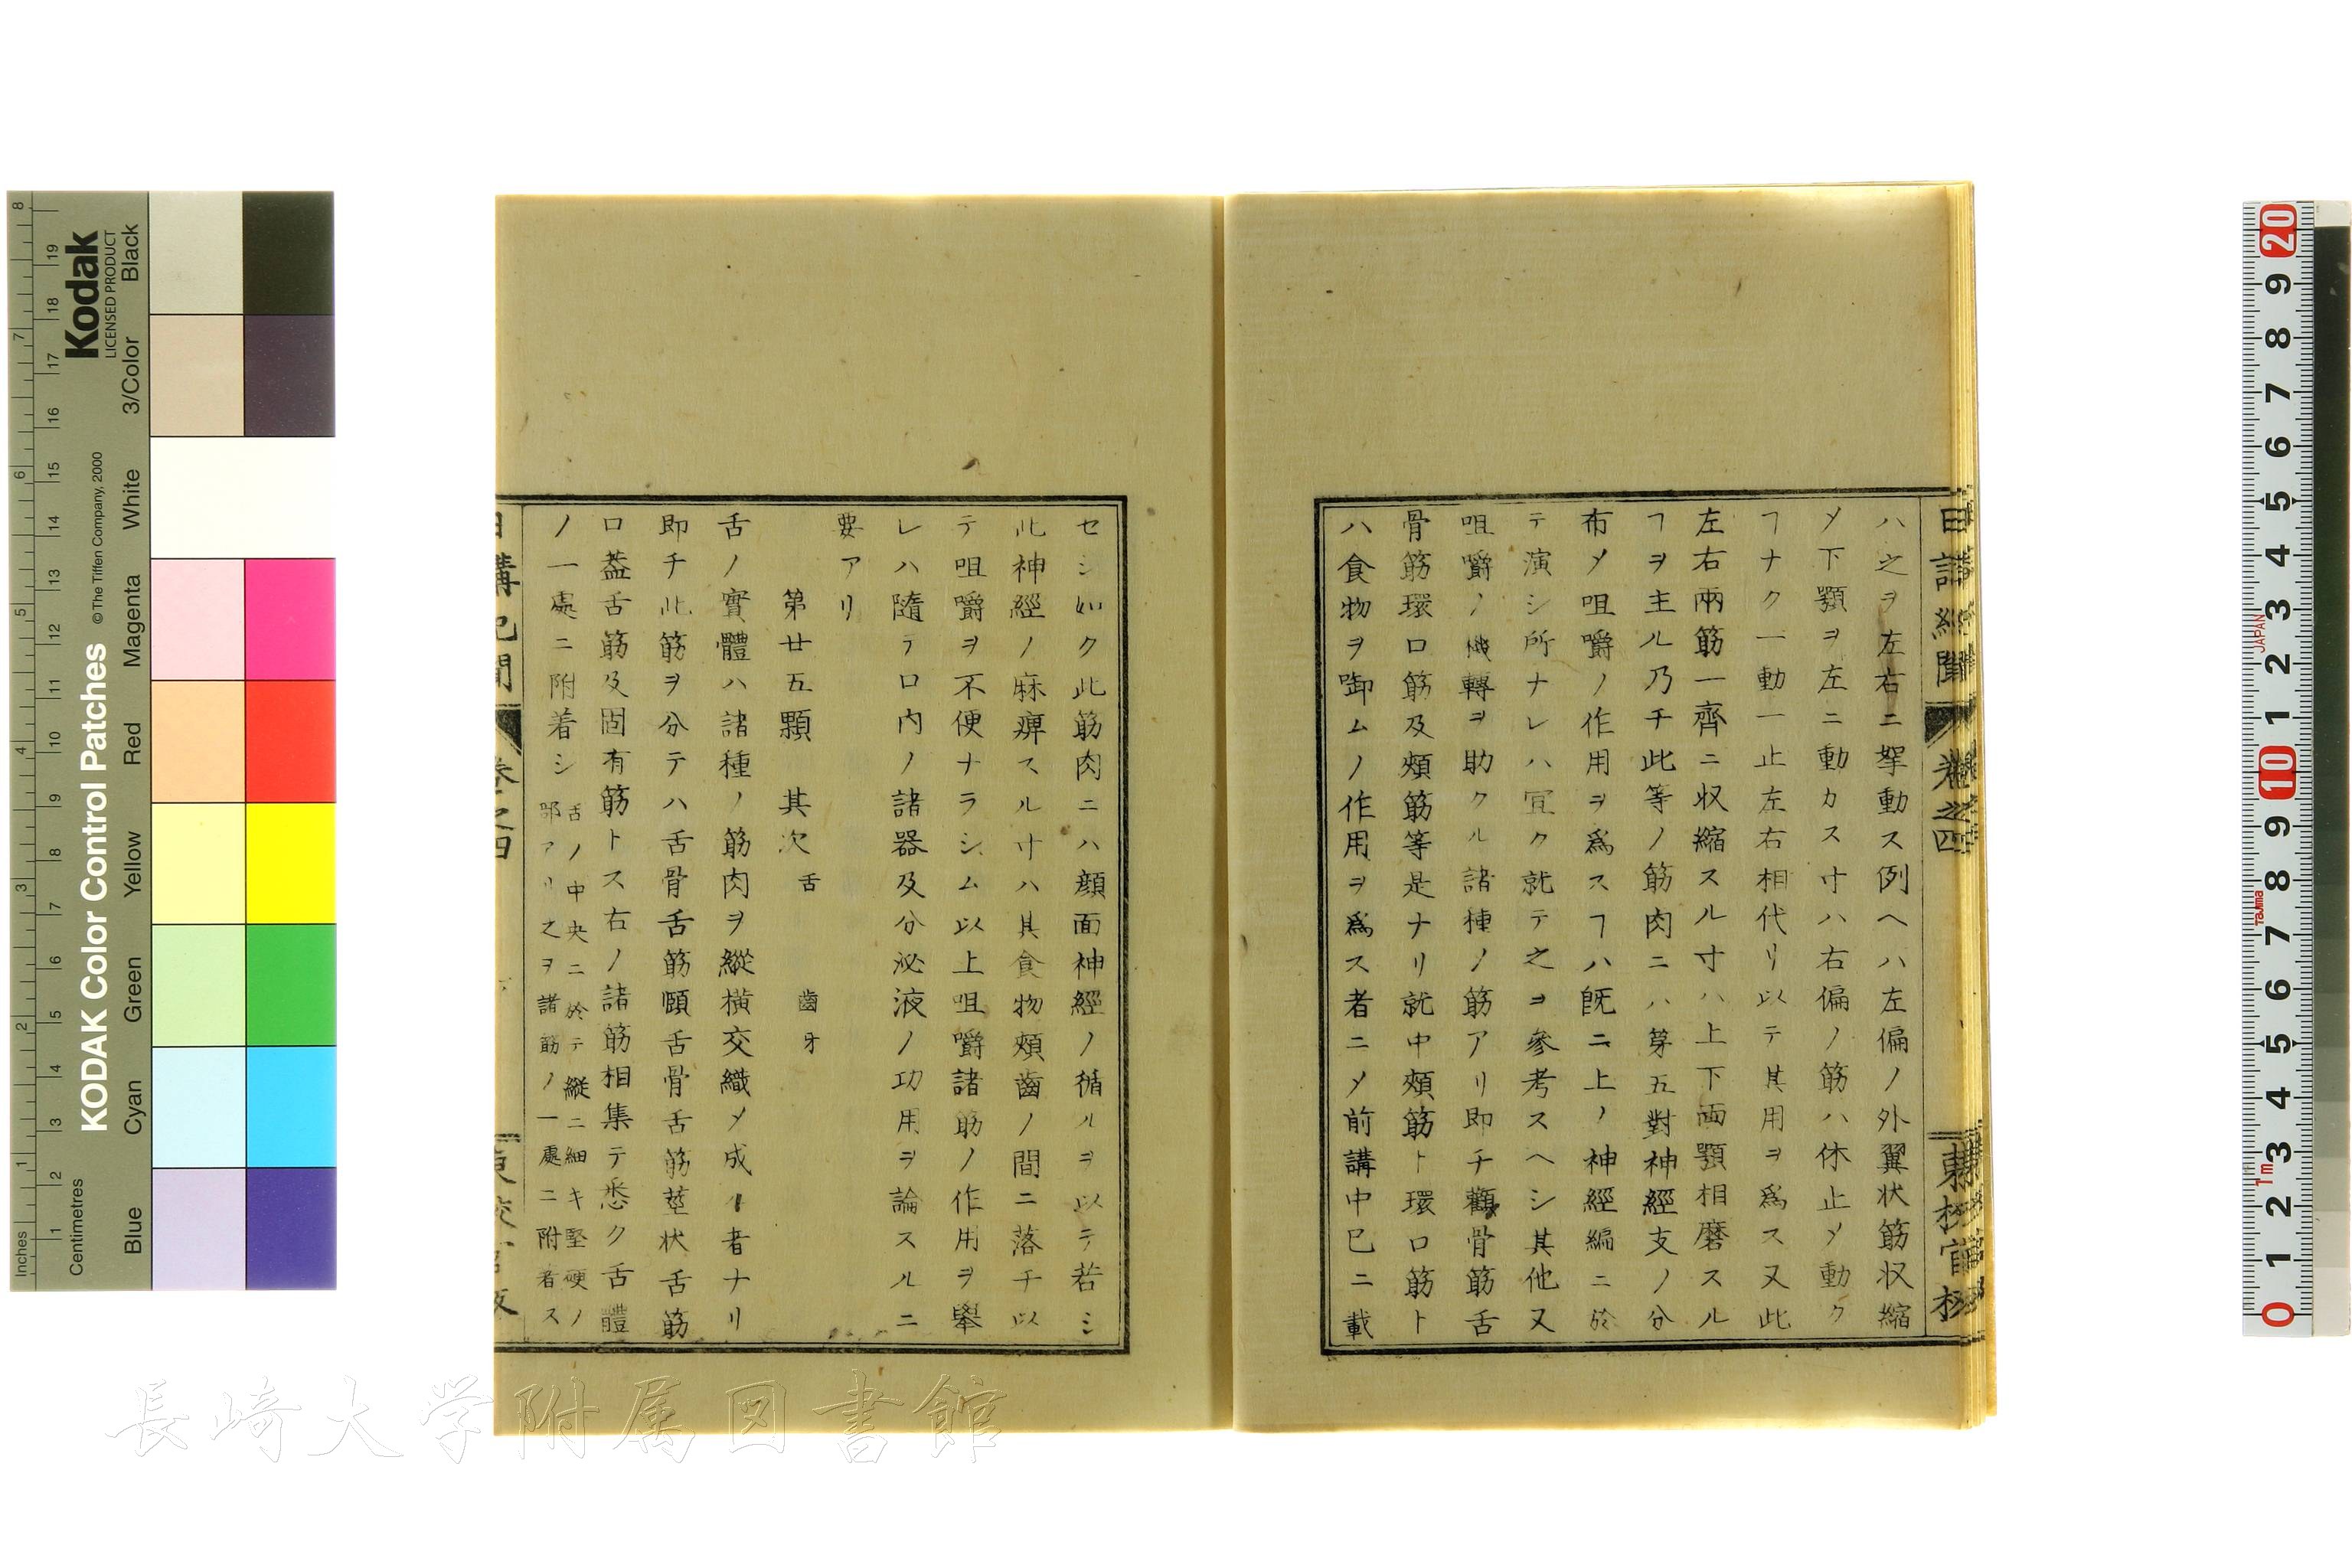 日講紀聞 卷之四 東校官板
ハ之ヲ左右ニ挐動ス例ヘハ左偏ノ外翼状筋収縮
〆下顎ヲ左ニ動カス寸ハ右偏ノ筋ハ休止〆動ク
ヿナク一動一止左右相代リ以テ其用ヲ爲ス又此
左右兩筋一齊ニ収縮スル寸ハ上下両顎相磨スル
ヿヲ主ル乃チ此等ノ筋肉ニハ第五對神經支ノ分
布〆咀嚼ノ作用ヲ爲スヿハ旣ニ上ノ神經編ニ於
テ演シ所ナレハ宜ク就テ之ヲ參考スヘシ其他又
咀嚼ノ機轉ヲ助クル諸種ノ筋アリ即チ顴骨筋舌
骨筋環口筋及頰筋等是ナリ就中頰筋ト環口筋ト
ハ食物ヲ啣ムノ作用ヲ爲ス者ニ〆前講中巳ニ載
セシ如ク此筋肉ニハ顔面神經ノ循ルヲ以テ若シ
此神經ノ麻痺スル寸ハ其食物頰齒ノ間ニ落チ以
テ咀嚼ヲ不便ナラシム以上咀嚼諸筋ノ作用ヲ擧
レハ隨テ口内ノ諸器及分泌液ノ功用ヲ論スルニ
要アリ
第廿五顆 其次舌 齒牙
舌ノ實體ハ諸種ノ筋肉ヲ縱横交織〆成ル者ナリ
即チ此筋ヲ分テハ舌骨舌筋頤舌骨舌筋莖状舌筋
口蓋舌筋及固有筋トス右ノ諸筋相集テ悉ク舌體
ノ一處ニ附着シ
舌ノ中央ニ於テ縦ニ細キ堅硬ノ
部アリ之ヲ諸筋ノ一處ニ附着ス
日講紀聞 卷之四
長崎大学附属図書館
Kodak
LICENSED PRODUCT
KODAK Color Control Patches © The Tiffen Company, 2000
Black
3/Color
White
Magenta
Red
Yellow
Green
Cyan
Blue
Inches 1 2 3 4 5 6 7 8
Centimetres 1 2 3 4 5 6 7 8 9 10 11 12 13 14 15 16 17 18 19
20 9 8 7 6 5 4 3 2 1 10 9 8 7 6 5 4 3 2 1 0
JAPAN
Tajima
1m